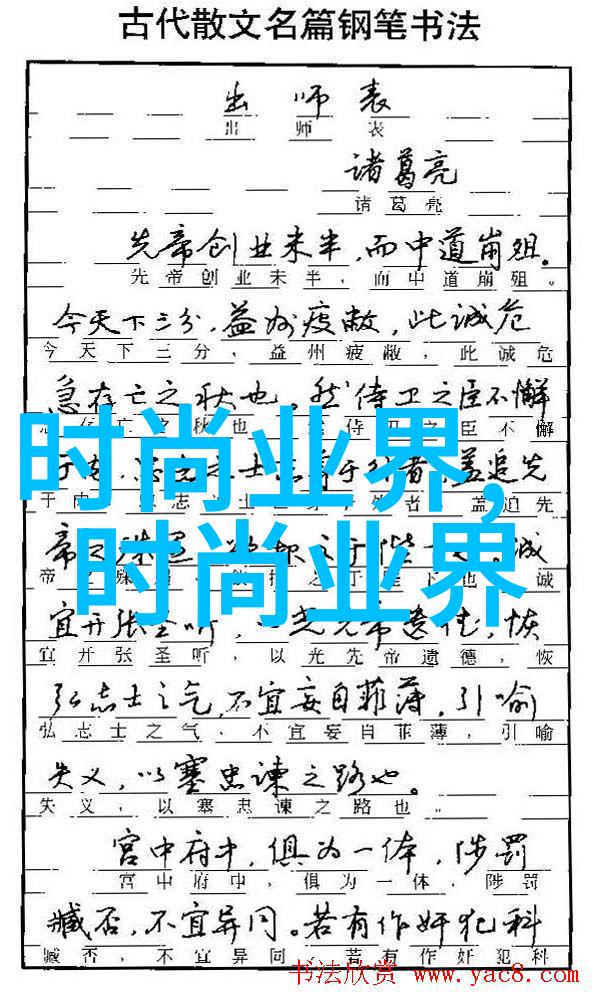 古代散文名篇钢笔书法
出师表
出师表
诸葛亮
诸葛亮
先帝创业未半，而中道崩殂。
先帝创业未半，而中道崩殂。
今天下三分，益州疲敝，此诚危
今天下三分，益州疲敝，此诚危
急存亡之秋也。然侍卫之臣不懈
之臣不懈
时尚业界，
盖追先
盖追先
时尚业界
诚
诚
宜开张圣听，以光先帝遗德，恢
宜开张圣听，以光先帝遗德，恢
弘志士之气，不宜妄自菲薄，引喻
弘志士之气，不宜妄自菲薄，引喻
失义，以塞忠谏之路也。
失义，以塞忠谏之路也。
宫中府中，俱为一体，陟罚
宫中府中，俱为一体，陟罚
臧否，不宜异同。若有作奸犯科
臧否，不宜异同。若有作奸犯科
书法欣赏 www.yac8.com